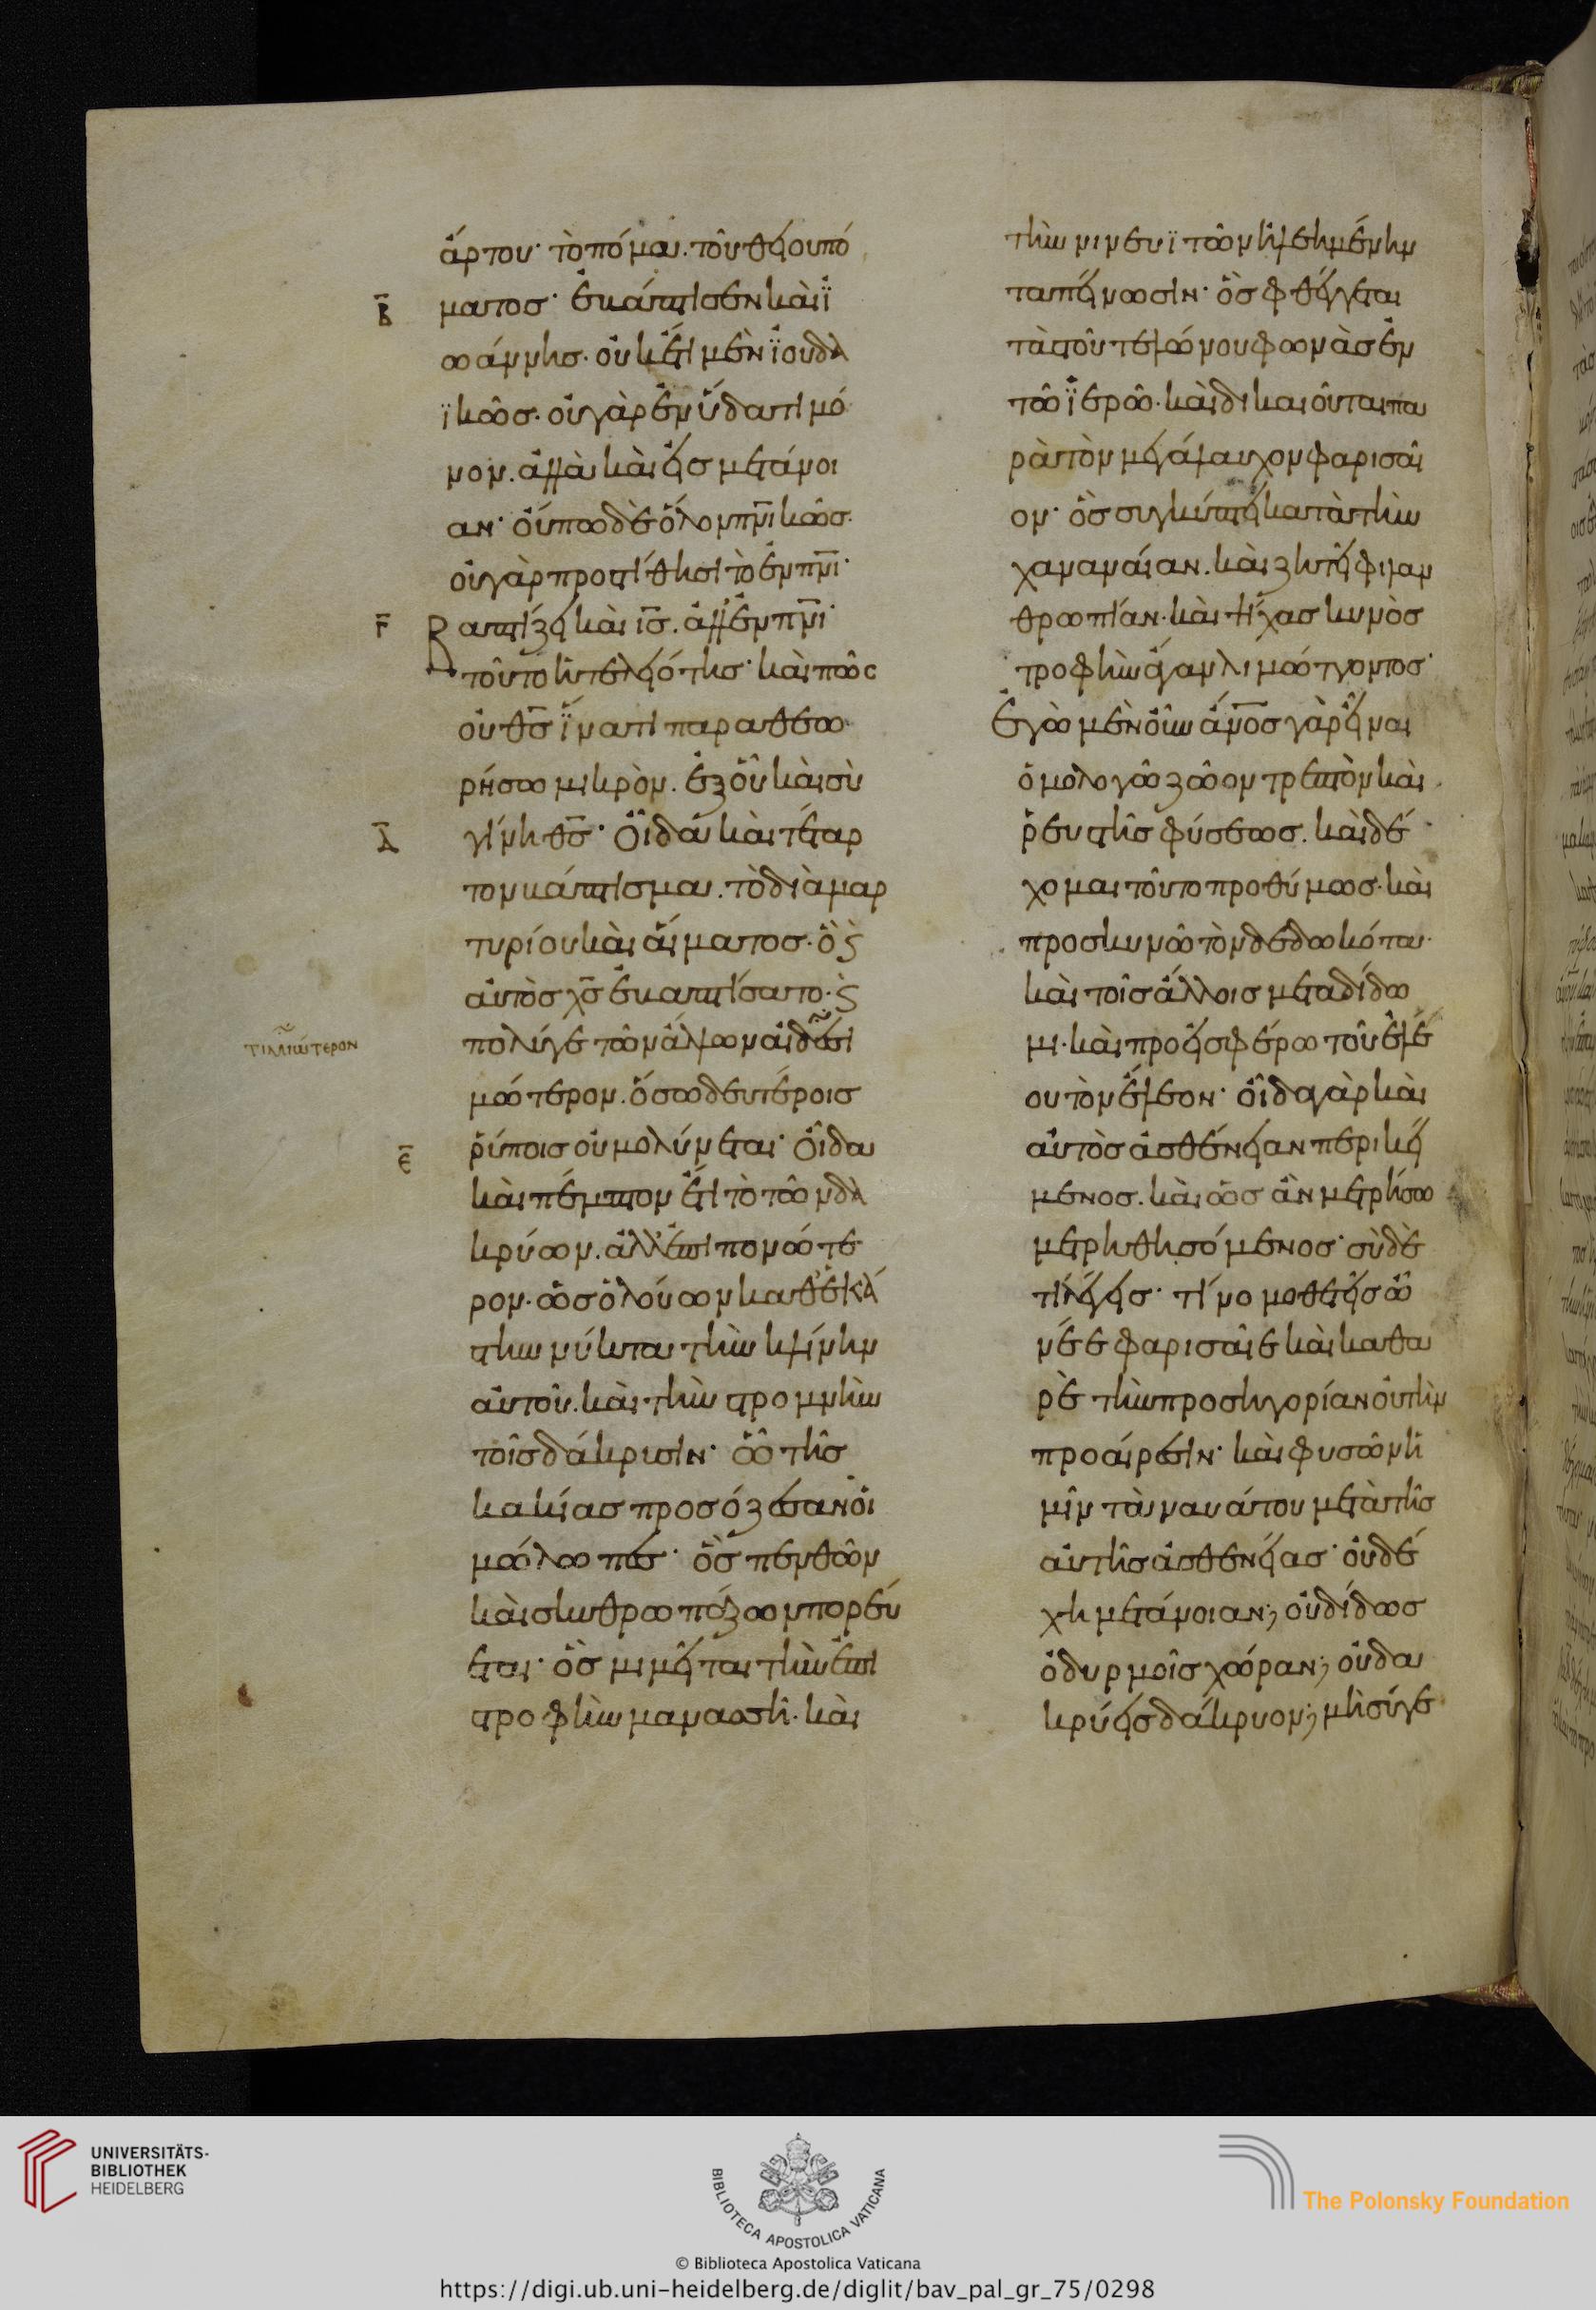 ἄρτου· τὸ πόμα. τοῦ θείου πό
Β̅ ματος· ἐβάπτισεν καὶ ϊ
ωάννησ. οὐκέτι μὲν ϊουδα
ϊκῶσ. οὐ γὰρ ἐν ὕδατι μό
νον. ἀλλὰ καὶ εἰσ μετάνοι
αν· οὔπω δὲ ὅλον πν̅ικῶσ.
οὐ γὰρ προστίθησι τὸ ἐν πν̅ι·
Γ̅ Βαπτίζει καὶ ισ̅. ἀλλ' ἐν πν̅ι·
τοῦτο ἡ τελειότησ· καὶ πῶς
οὐ θσ̅ ἵνα τι παραθεω
ρήσω μικρὸν. ἐξ οὗ καὶ σὺ
Δ̅ γίνη θσ̅· Οἶδα καὶ τέταρ
τον βάπτισμα. τὸ διὰ μαρ
τυρίου καὶ αἵματοσ. ὃ ϛ̀
αὐτὸσ χσ̅ ἐβαπτίσατο. ϛ̀
πολύ γε τῶν ἄλλων αἰδεσι
τιμιώτερον
μώτερον. ὅσω δευτέροισ
Ε̅ ῥύποισ οὐ μολύνεται· Οἶδα
καὶ πέμπτον ἔτι τὸ τῶν δα
κρύων. ἀλλ' ἐπιπονώτε
ρον. ὡσ ὁ λούων καθ' ἑκά
στην νύκτα τὴν κλίνην
αὐτοῦ. καὶ τὴν στρωμνὴν
τοῖσ δάκρυσιν· ὧ τῆσ
κακίασ προσόζεσαν οἱ
μώλωπεσ· ὃσ πενθῶν
καὶ σκυθρωπάζων πορεύ
εται· ὃσ μιμεῖται τὴν ἐπι
στροφὴν μανασσῆ. καὶ
τὴν νινευϊτῶν ἠλεημένην
ταπείνωσιν· ὃσ φθέγγεται
τὰσ τοῦ τελώνου φωνὰσ ἐν
τῶ ϊερῶ. καὶ δικαιοῦται πα
ρὰ τὸν μεγάλαυχον φαρισαῖ
ον· ὃσ συγκύπτει κατὰ τὴν
χαναναίαν. καὶ ζητεῖ φιλαν
θρωπίαν. καὶ ψίχασ κυνὸσ
τροφὴν ἄγαν λιμώττοντοσ·
Ἐγὼ μὲν οὖν ἄν̅οσ γὰρ εἶναι
ὁμολογῶ ζῶον τρεπτὸν καὶ
ῥευστῆσ φύσεωσ. καὶ δέ
χομαι τοῦτο προθύμωσ. καὶ
προσκυνῶ τὸν δεδωκότα.
καὶ τοῖσ ἄλλοισ μεταδίδω
μι. καὶ προεισφέρω τοῦ ἐλέ
ου τὸν ἔλεον· οἶδα γὰρ καὶ
αὐτὸσ ἀσθένειαν περικεί
μενοσ. καὶ ὡσ ἂν μετρήσω
μετρηθησόμενοσ· σὺ δὲ
τί λέγεισ· τί νομοθετεῖσ ὦ
νέε φαρισαῖε καὶ καθα
ρὲ τὴν προσηγορίαν οὐ τὴν
προαίρεσιν· καὶ φυσῶν ἡ
μῖν τὰ ναυάτου μετὰ τῆσ
αὐτῆσ ἀσθενείασ· οὐ δέ
χη μετάνοιαν; οὐ δίδωσ
ὀδυρμοῖσ χώραν; οὐ δα
κρύεισ δάκρυον; μὴ σύ γε
UNIVERSITÄTS-
BIBLIOTHEK
HEIDELBERG
BIBLIOTECA APOSTOLICA VATICANA
The Polonsky Foundation
© Biblioteca Apostolica Vaticana
https://digi.ub.uni-heidelberg.de/diglit/bav_pal_gr_75/0298